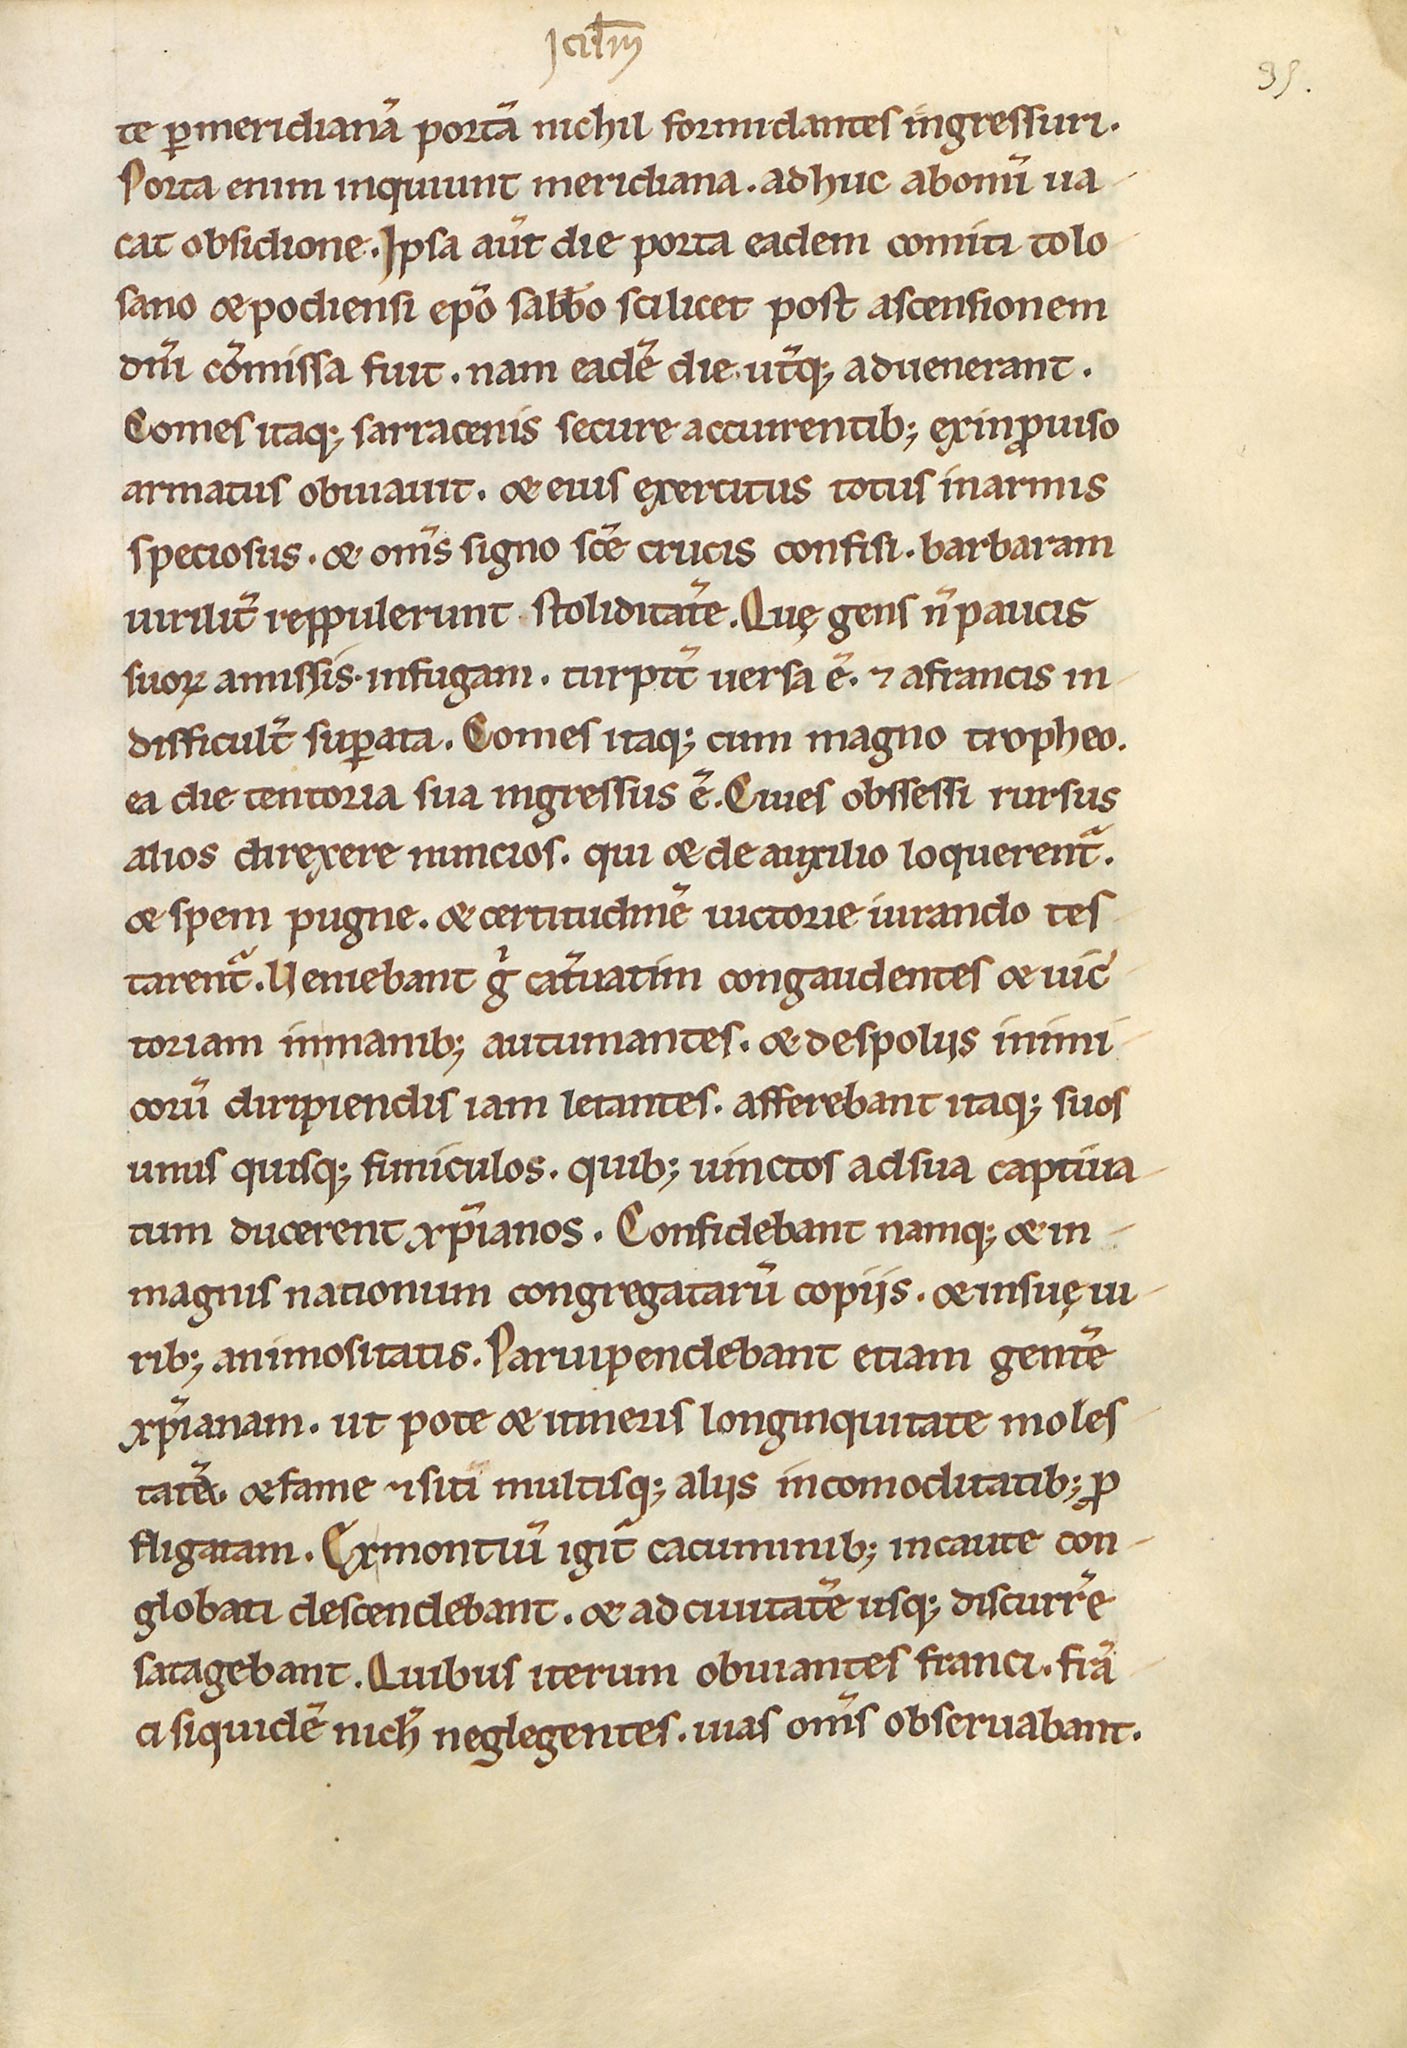 35.
te ꝑmeridianā portā nichil formidantes ingressuri.
Porta enim inquiunt meridiana. adhuc abomī ua-
cat obsidione. Ipsa aut̄ die porta eadem comiti tolo-
sano & podiensi ep̄o sabb̄o scilicet post ascensionem
dn̄i cōmissa fuit. nam eadē die. ut̄q; aduenerant.
Comes itaq; sarracenis secure accurrentib; eximꝓuiso
armatus obuiauit. & eius exercitus totus inarmis
speciosus. & om̄s signo sc̄e crucis confisi. barbaram
uirilit̄ reppulerunt stoliditatē. Quę gens n̄ paucis
suoꝝ amissis. infugam. turpit̄ uersa ē. ⁊ afrancis in-
difficult̄ suꝑata. Comes itaq; cum magno tropheo.
ea die tentoria sua ingressus ē. Ciues obsessi rursus
alios direxere nuncios. qui & de auxilio loquerent̄.
& spem pugne. & certitudinē uictorie iurando tes-
tarent̄. Ueniebant g̍ cat̄uatim congaudentes & uic-
toriam inmanib; autumantes. & despoliis inimi-
corū diripiendis iam letantes. afferebant itaq; suos
unus quisq; funiculos. quib; uinctos adsua captiua-
tum ducerent xp̄ianos. Confidebant namq; & in-
magnis nationum congregatarū copiis. & insuę ui-
rib; animositatis. Paruipendebant etiam gentē
xp̄ianam. ut pote & itineris longinquitate moles-
tatā. & fame ⁊ siti multisq; aliis incomoditatib; ꝓ-
fligatam. Exmontiū igit̄ cacuminib; incaute con-
globati descendebant. & ad ciuitatē usq; discurr̄e
satagebant. Quibus iterum obuiantes franci. frā-
ci siquidē nich̄ neglegentes. uias om̄s obseruabant.